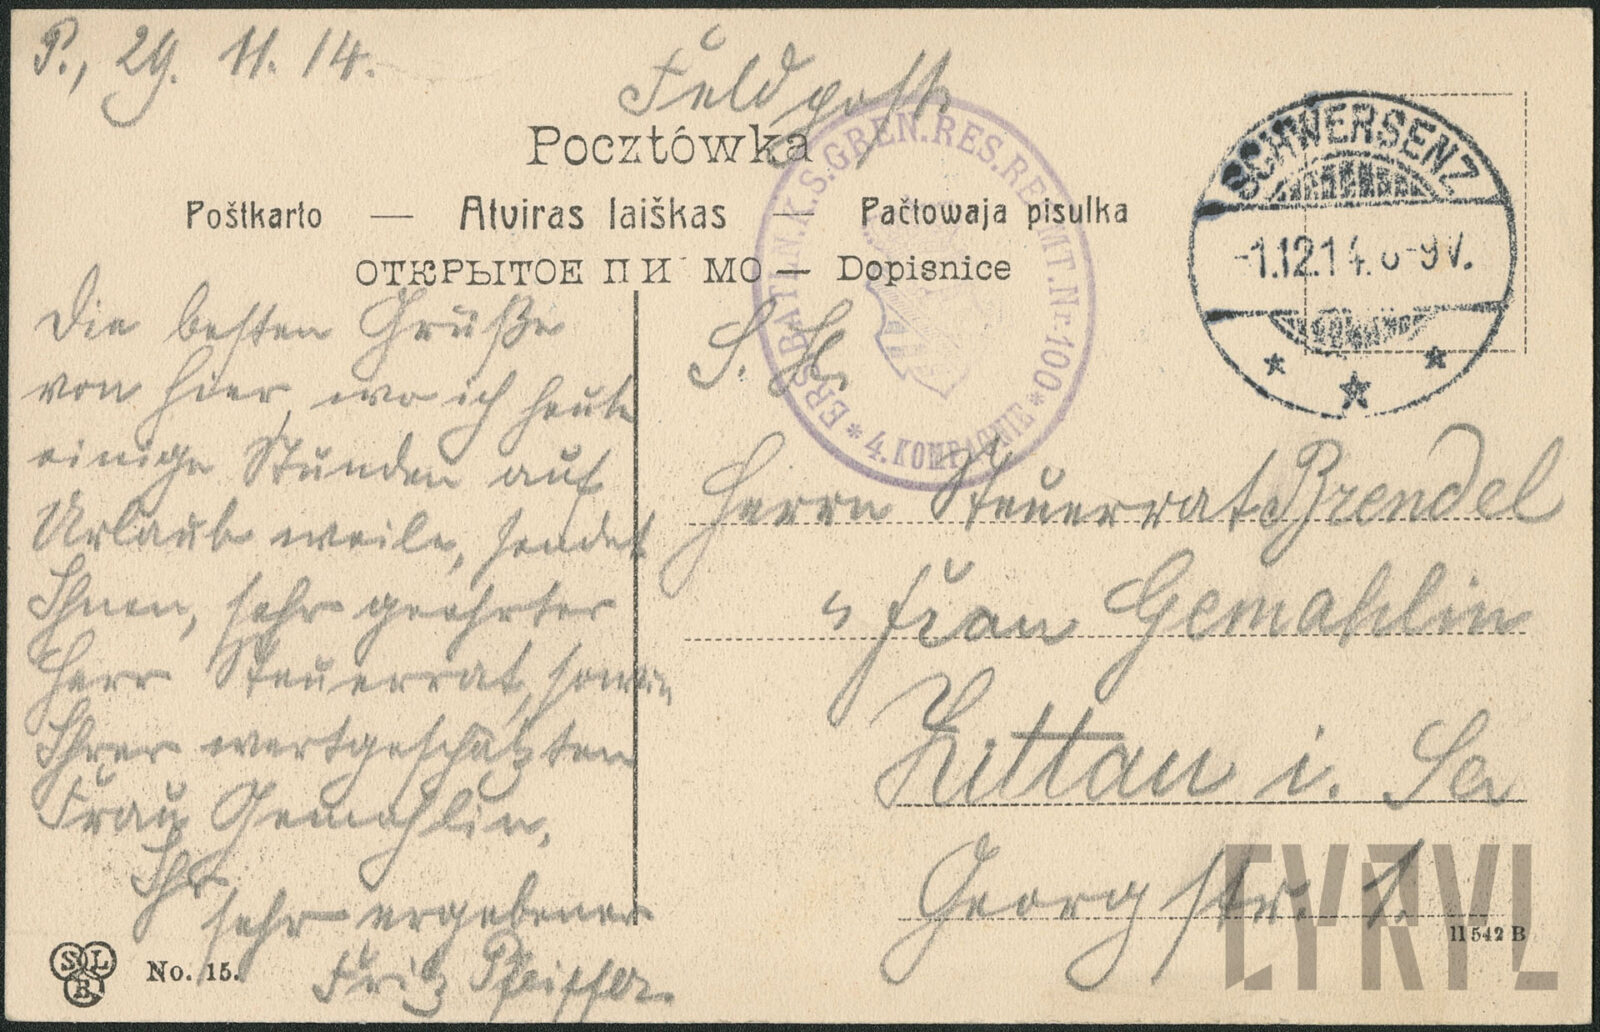 P., 29. 11. 14.
Feldpost
Pocztówka
Poštkarto — Atviras laiškas — Pačtowaja pisulka
ОТКРЫТОЕ ПИ МО — Dopisnice
SCHWERSENZ
-1.12.14. 8-9V.
ERS. BATLN. K. S. GREN. RES. REGMT. Nr. 100 *
* 4. KOMPAGNIE *
Die besten Grüße
von hier, wo ich heute
einige Stunden auf
Urlaub weile, sendet
Ihnen, sehr geehrter
Herr Steuerrat, sowie
Ihrer wertgeschätzten
Frau Gemahlin,
Ihr
sehr ergebener
Fritz Pfeiffer.
S. H.
Herrn Steuerrat Brendel
u Frau Gemahlin
Zittau i. Sa
Georgstr. 1.
SLB
No. 15.
11542 B
CYRYL